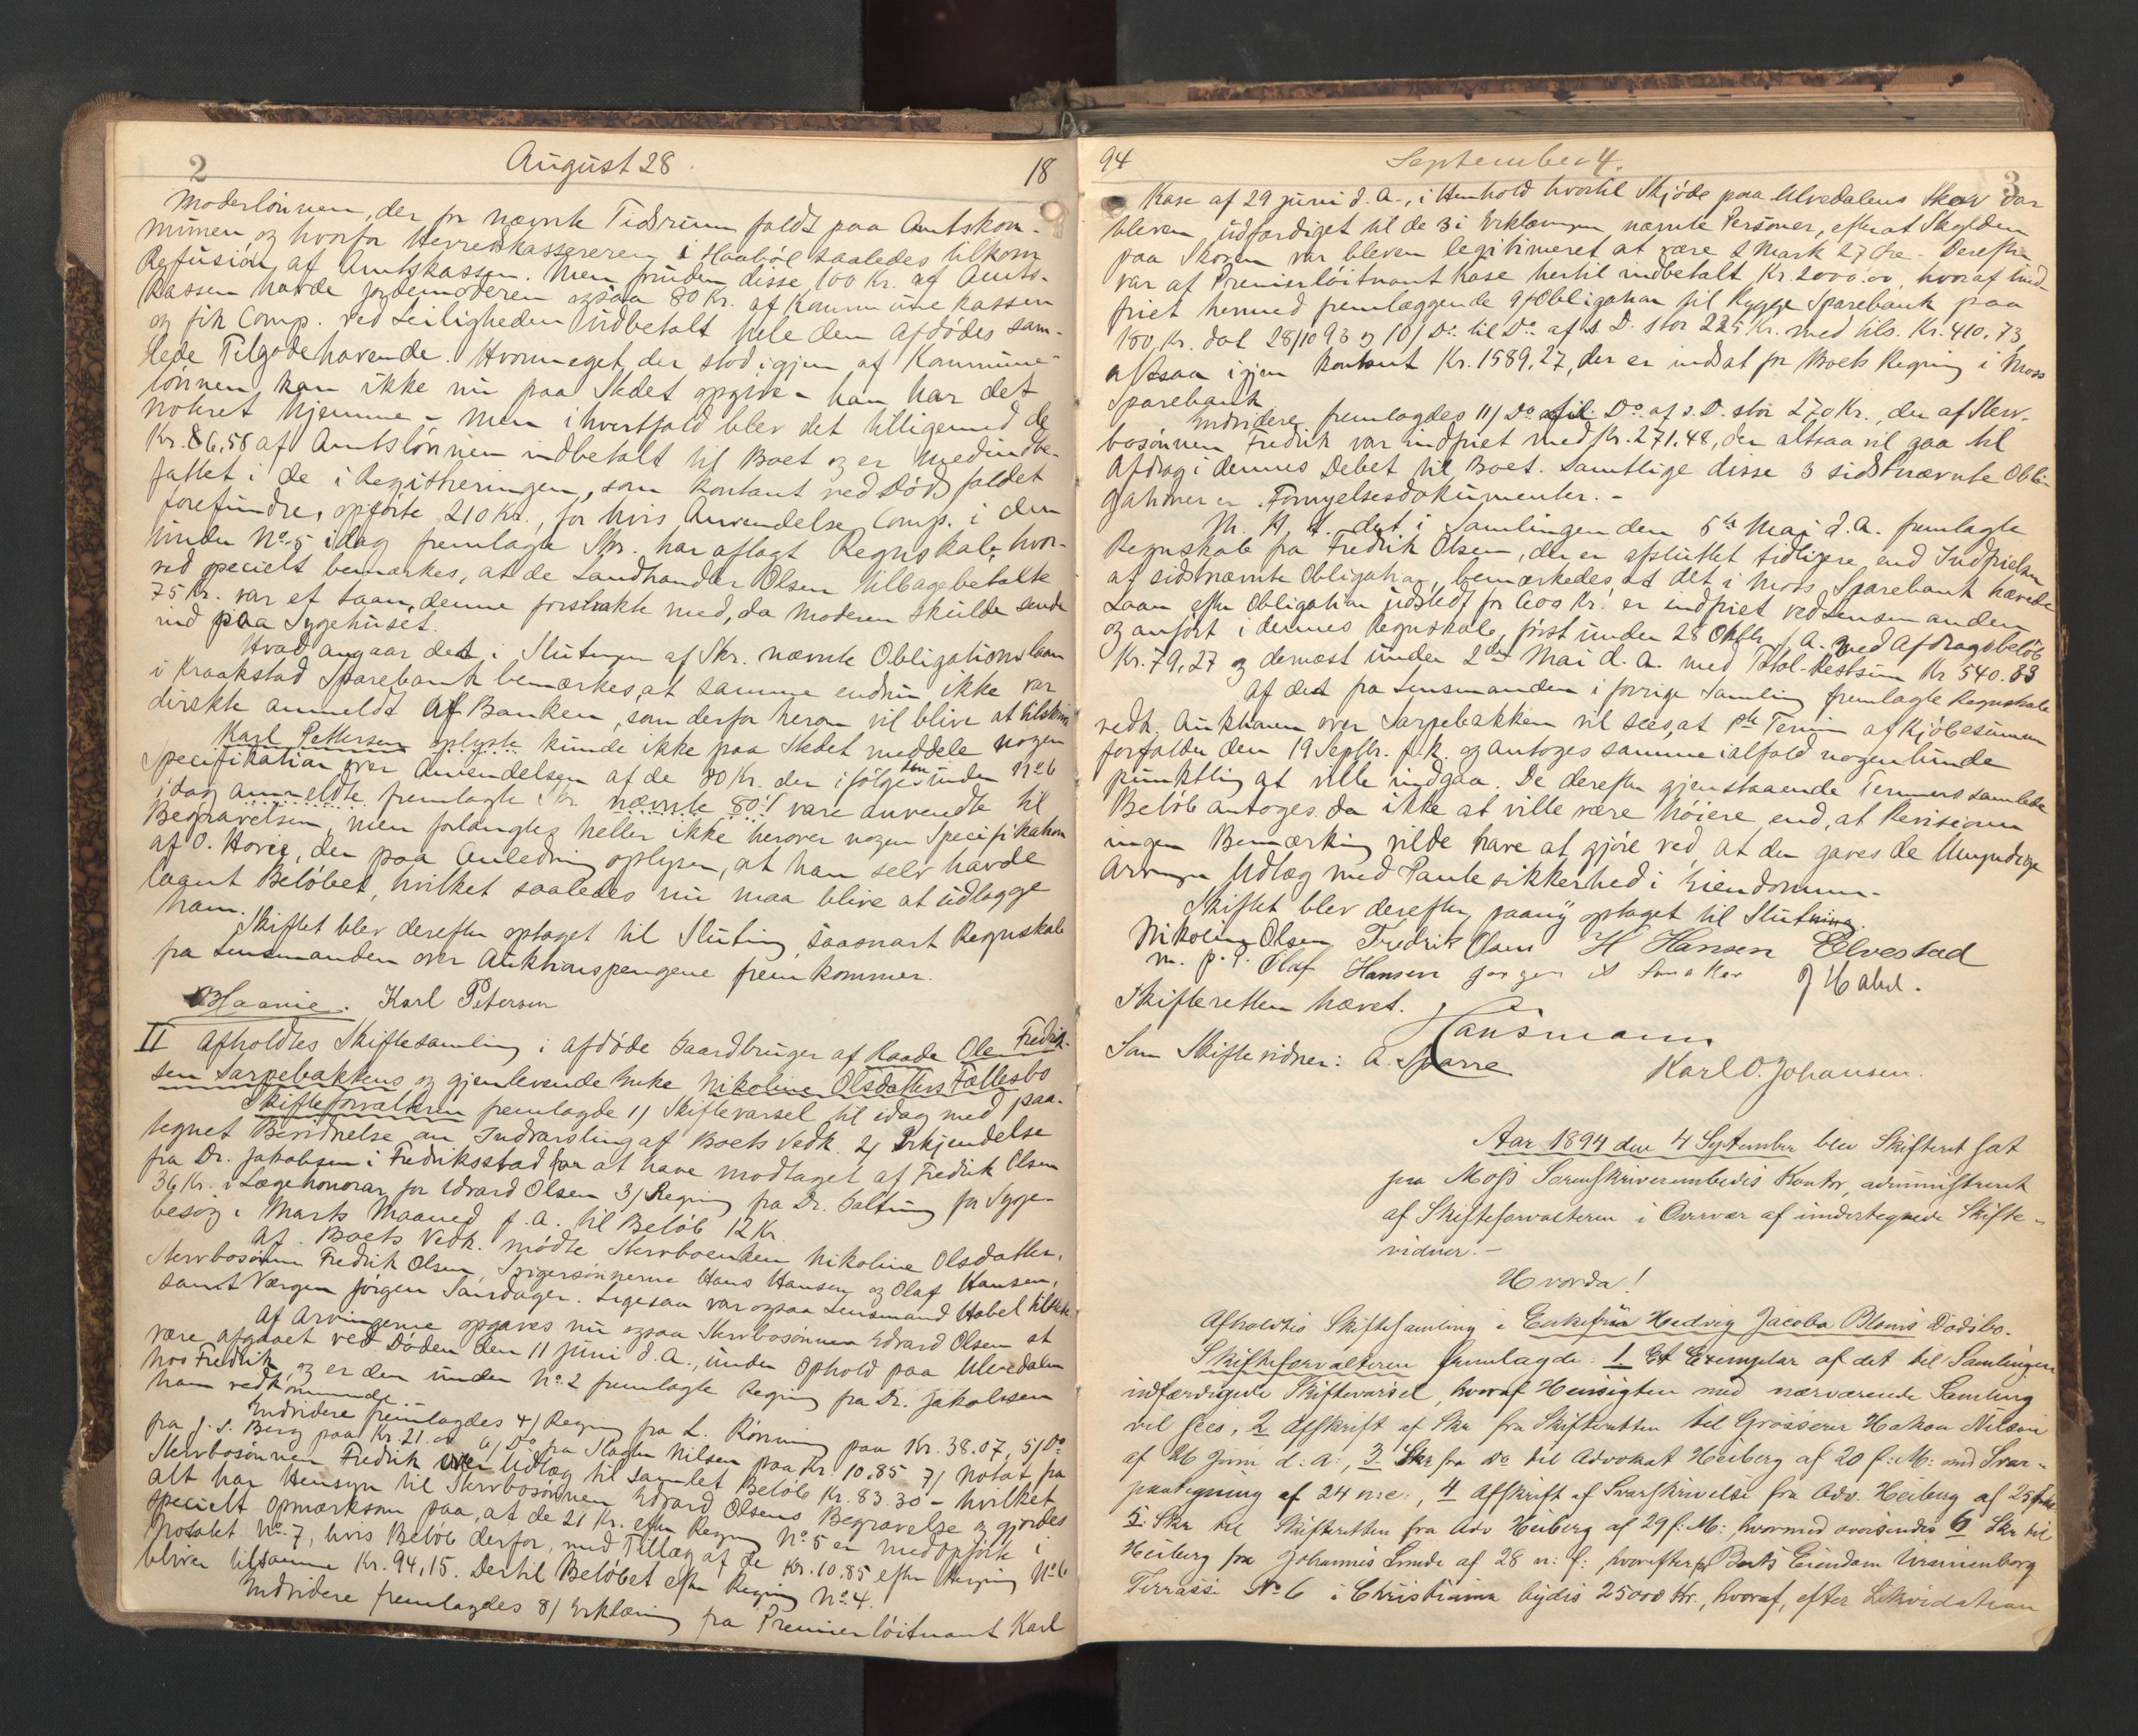 2
August 28.
18
Moderlönnen, der for nævnte Tidsrum faldt paa Amtskom-
munen, og hvorfor Herredskassereren i Haaböl saaledes tilkom
Refusion af Amtskassen. Men foruden disse 100 Kr. af Amts-
kassen havde Jordemoderen ogsaa 80 Kr. af Kommunekassen
og fik Comp. ved Leiligheden udbetalt hele den Afdödes sam-
lede Tilgodehavende. Hvormeget der stod igjen af Kommune-
lönnen kan ikke nu paa Stedet opgive - han har det
noteret hjemme - men ihvertfald blev det tilligemed de
Kr. 86,58 af Amtslönnen indbetalt til Boet og er medindbe-
fattet i de i Registreringen, som kontant ved Dödsfaldet
forefundne, opförte 210 Kr., for hvis Anvendelse Comp. i den
under No. 5 idag fremlagte Skr. har aflagt Regnskab; hvor-
ved specielt bemærkes, at de Landhandler Olsen tilbagebetalte
75 Kr. var et Laan, denne forstrakte med, da Moderen skulde sendes
ind paa Sygehuset.
Hvad angaar det i Slutningen af Skr. nævnte Obligationslaan
i Kraakstad Sparebank bemærkes, at samme endnu ikke var
direkte anmeldt af Banken, som derfor herom vil blive at tilskrive
Karl Pettersen oplyste kunde ikke paa Stedet meddele nogen
Specifikation over Anvendelsen af de 80 Kr. der ifölge den under No 6
idag anmeldte fremlagte Skr. nævnte 80 vare anvendte til
Begravelsen, men forlangtes heller ikke herover nogen Specifikation
af O. Hovie, der paa Anledning oplyser, at han selv havde
laant Belöbet, hvilket saaledes nu maa blive at udlægge
ham.
Skiftet blev derefter optaget til Slutning, saasnart Regnskab
fra Lensmanden over Auktionspengene fremkommer.
Karl Peterson
II Afholdtes Skiftesamling i afdöde Gaardbruger af Raade Ole Fredrik-
sen Sarpebakkens og gjenlevende Enke Nikoline Olsdatters Fællesbo
Skifteforvalteren fremlagde 1) Skiftevarsel til idag med paa-
tegnet Bevidnelse om Indvarsling af Boets Vedk. 2) Erkjendelse
fra Dr. Jakobsen i Fredriksstad for at have modtaget af Fredrik Olsen
36 Kr. i Lægehonorar for Edvard Olsen 3) Regning fra Dr. Saltung for Syge-
besög i Marts Maaned f. A. til Belöb 12 Kr.
Af Boets Vedk. mödte Stervboenken Nikoline Olsdatter,
Stervbosönnen Fredrik Olsen, Svigersönnerne Hans Hansen og Olaf Hansen,
samt Værgen Jörgen Sandager. Ligesaa var ogsaa Lensmand Habel tilstede.
Af Arvingerne opgaves nu ogsaa Stervbosönnen Edvard Olsen at
være afgaaet ved Döden den 11 Juni d. A., under Ophold paa Ulvedalen
hos Fredrik, og er den under No. 2 fremlagte Regning fra Dr. Jakobsen
ham vedkommende.
Endvidere fremlagdes 4) Regning fra L. Rönning paa Kr. 38.07, 5) Do
fra J. S. Berg paa Kr. 21.00 6) Do fra Slagter Nilsen paa Kr. 10.85 7) Notat fra
Stervbosönnen Fredrik over Udlæg til samlet Belöb Kr. 83.30 - hvilket
alt har Hensyn til Stervbosönnen Edvard Olsens Begravelse og gjordes
specielt opmærksom paa, at de 21 Kr. efter Regning No. 5 er medopfört i
Notatet No. 7, hvis Belöb derfor, med Tillæg af de Kr. 10.85 efter Regning No 6
bliver tilsammen Kr. 94,15. Dertil Belöbet efter Regning No. 4.
Endvidere fremlagdes 8) Erklæring fra Premierlöitnant Karl
94
September 4.
3
Kase af 29 Juni d. A., i Henhold hvortil Skjöde paa Ulvedalens Skov var
bleven udfærdiget til de 3 i Erklæringen nævnte Personer, efterat Skylden
paa Skoven var bleven legitimeret at være 2 Mark 27 Öre. Derefter
var af Premierlöitnant Kase hertil indbetalt Kr. 2000.00, hvoraf ind-
friet hermed fremlæggende 9) Obligation til Rygge Sparebank paa
180 Kr. dat 28/10 93 og 10) Do. til Do. af s. D. stor 225 Kr. med tils. Kr. 410.73,
altsaa igjen kontant Kr. 1589.27, der er indsat for Boets Regning i Moss
Sparebank.
Endvidere fremlagdes 11) Do til Do af s. D. stor 270 Kr., der af Sterv-
bosönnen Fredrik var indfriet med Kr. 271.48, der altsaa vil gaa til
Afdrag i dennes Debet til Boet. Samtlige disse 3 sidstnævnte Obli-
gationer er Fornyelsesdokumenter. -
M. H. t. det i Samlingen den 5te Mai d. A. fremlagte
Regnskab fra Fredrik Olsen, der er afsluttet tidligere end Indfrielsen
af sidstnævnte Obligation, bemærkedes at det i Moss Sparebank hævede
Laan efter Obligation udstedt for 600 Kr. er indfriet ved Lensmanden
og anfört i dennes Regnskab, först under 28 Oktbr. f. A. med Afdragsbelöb
Kr. 79,27 og dernæst under 2den Mai d. A. med Kr 540.83
Af det fra Lensmanden i forrige Samling fremlagte Regnskab
vedk. Auktionen over Sarpebakken vil sees, at 1ste Termin af Kjöbesummen
forfalder den 19 Septbr. f. k. og antoges samme ialfald nogenlunde
punktlig at ville indgaa. De derefter gjenstaaende Terminers samlede
Belöb antoges da ikke at ville være höiere end, at Revisionen
ingen Bemærkning vilde have at gjöre ved, at den gaves de Umyndige
Arvinger Udlæg med Pantesikkerhed i Eiendommen.
Skiftet blev derefter paany optaget til Slutning.
Nikoline Olsen Fredrik Olsen H Hansen Elvestad
m. p. P. Olaf Hansen Jörgen J Habel.
Skifteretten hævet.
Hansmann
Som Skiftevidner: A. Sparre Karl O. Johansen.
Aar 1894 den 4 September blev Skifteret sat
paa Moss Sorenskriverembedes Kontor, administreret
af Skifteforvalteren i Overvær af undertegnede Skifte-
vidner. -
Hvorda!
Afholdtes Skiftesamling i Enkefru Hedvig Jacoba Bloms Dödsbo.
Skifteforvalteren fremlagde: 1. Et Exemplar af det til Samlingen
udfærdigede Skiftevarsel, hvoraf Hensigten med nærværende Samling
vil sees, 2 Afskrift af Skr fra Skifteretten til Grosserer Hakon Nilson
af 26 Juni d: A:, 3 Skr fra Do til Advokat Heiberg af 20 f: M: med Svar-
paategning af 24 n: e:, 4 Afskrift af Svarskrivelse fra Adv. Heiberg af 25
5: Skr til Skifteretten fra Adv Heiberg af 29 f: M: hvormed oversendes 6 Skr til
Heiberg fra Johannes Lunde af 28 n: f:, hvorefter for Boets Eiendom Uranienborg
Terrasse No 6 i Christiania bydes 25000 Kr., hvoraf, efter Likvidation